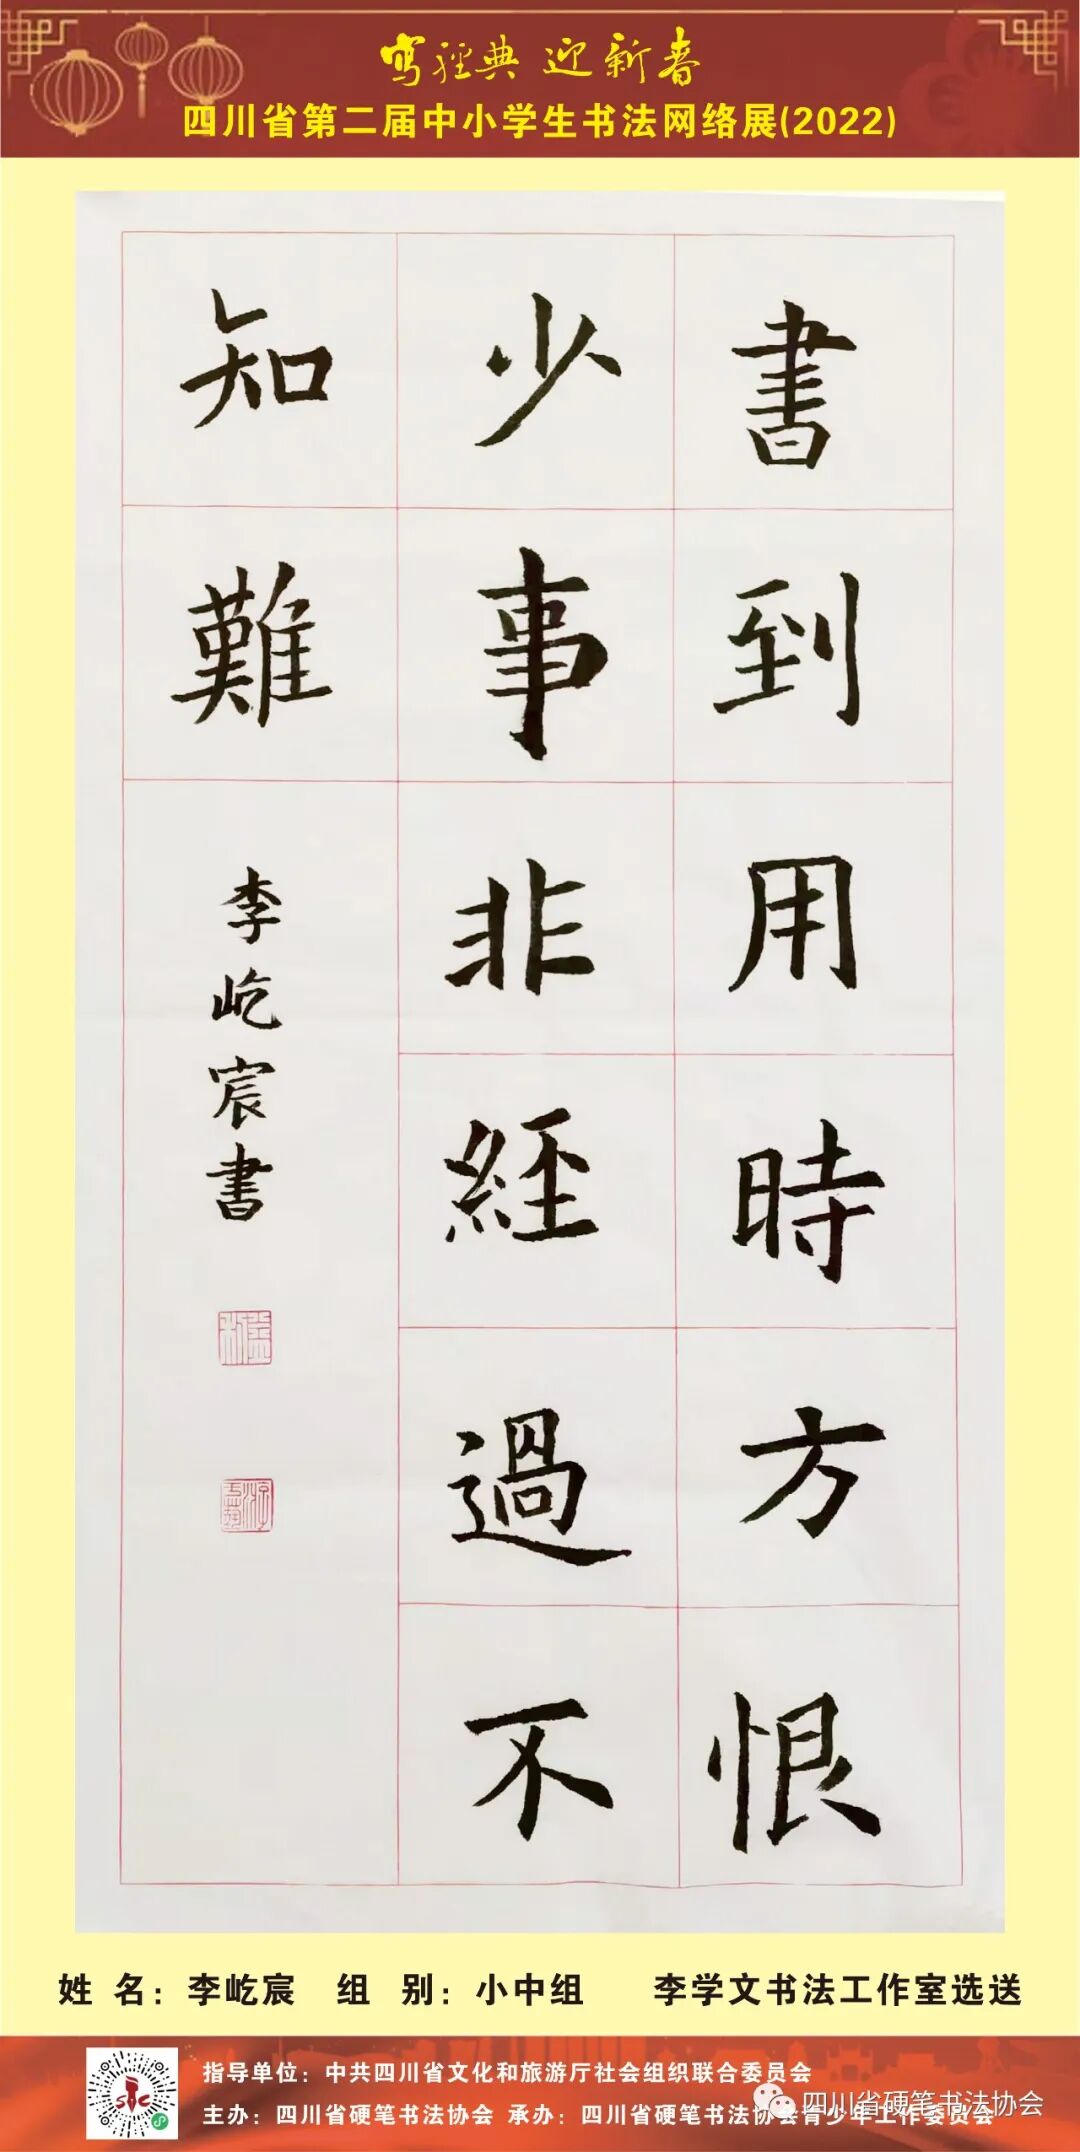 寫經典 迎新春
四川省第二届中小学生书法网络展(2022)
書到用時方恨
少事非經過不
知難
李屹宸書
姓 名：李屹宸 组 别：小中组 李学文书法工作室选送
指导单位：中共四川省文化和旅游厅社会组织联合委员会
主办：四川省硬笔书法协会 承办：四川省硬笔书法协会青少年工作委员会
四川省硬笔书法协会